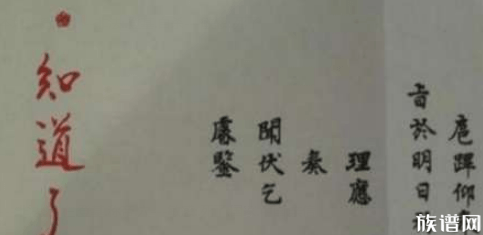 扈蹕仰
旨於明日
理應
奏
聞伏乞
睿鑒
知道了
族谱网